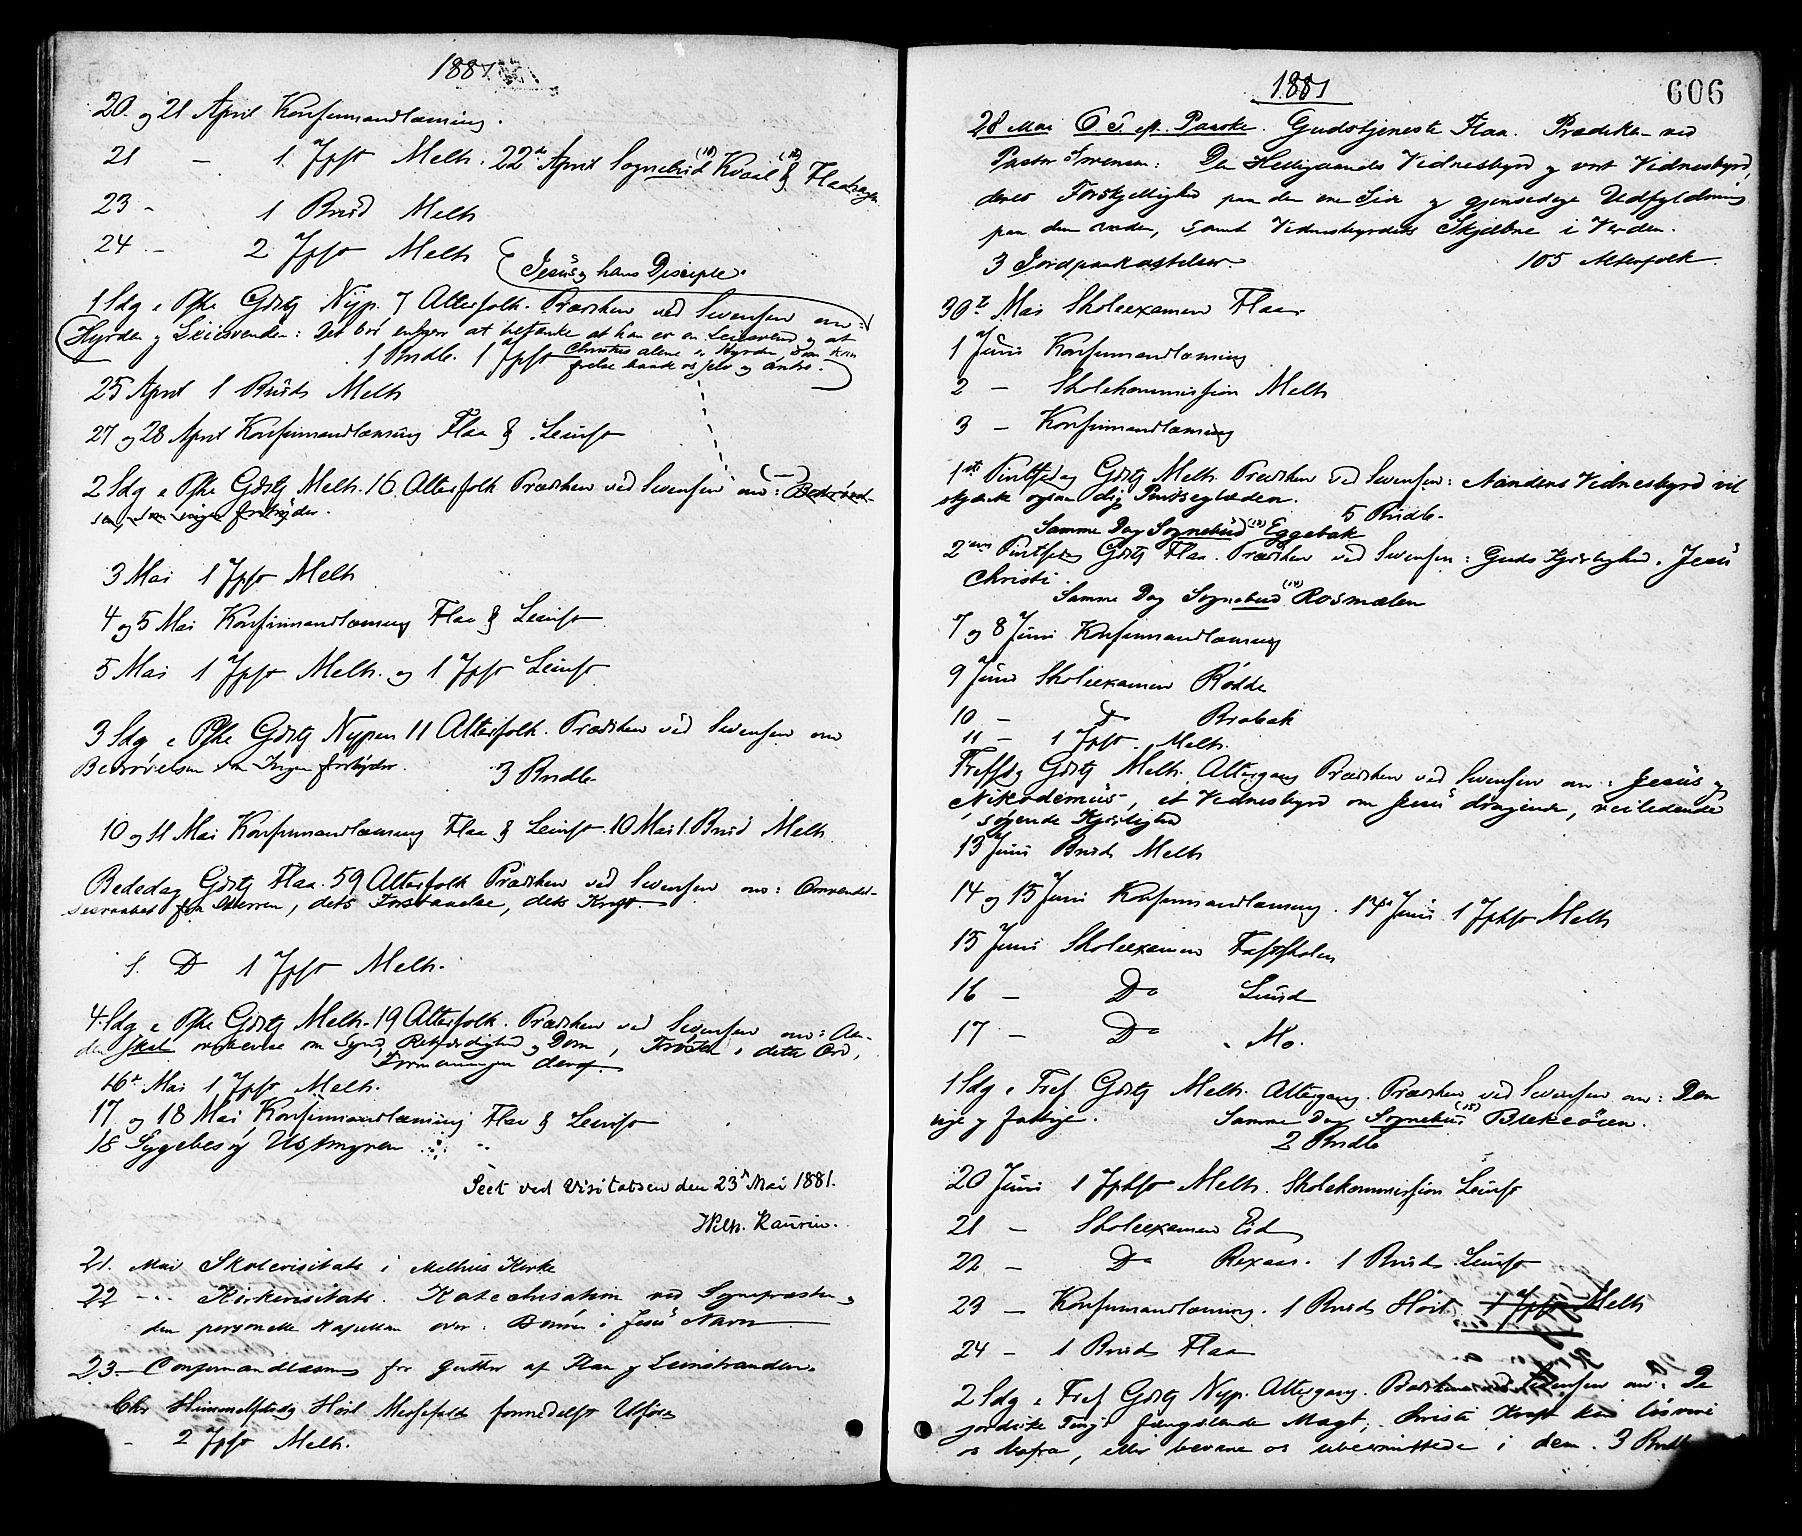 1881
20 og 21 April Konfirmandlæsning.
21 - 1 Jpfst Melh. 22de April Sognebud (10) Kvaal & (10) Flaa
23 - 1 Brud Melh
24 - 2 Jpfst Melh
Jesus og hans Disciple.
1 Sdg e Pske Gdstj Nyp. 7 Alterfolk. Prædiken ved Svensen om:
Hyrden og Leiesvenden: Det bør enhver at betænke at han er en Leiesvend og at
1 Brudb. 1 Jpfst Christus alene er Hyrden, som kan
frelse baade os selv og andre.
25 April 1 Brud Melh
27 og 28 April Konfirmandlæsning Flaa & Leinst
2 Sdg e Pske Gdstj Melh. 16 Alterfolk Prædiken ved Svensen om: Bedrøvel-
sen, som ingen fortryder.
3 Mai 1 Jpfst Melh
4 og 5 Mai Konfirmandlæsning Flaa & Leinst
5 Mai 1 Jpfst Melh. og 1 Jpfst Leinst
3 Sdg e Pske Gdstj Nypen 11 Alterfolk. Prædiken ved Svensen om
Bedrøvelsen som Ingen fortryder. 3 Brudb
10 og 11 Mai Konfirmandlæsning Flaa & Leinst. 10 Mai 1 Brud Melh
Bededag Gdstj Flaa. 59 Alterfolk Prædiken ved Svensen om: Omvendel-
sesraabet fra Herren, dets Forstaaelse, dets Kraft.
S. D 1 Jpfst Melh.
4. Sdg e Pske Gdstj Melh. 19 Alterfolk. Prædiken ved Svensen om: Aan-
den skal overbevise om Synd, Retfærdighed og Dom, Trøsten i dette Ord,
Formaningen deraf
16de Mai 1 Jpfst Melh.
17 og 18 Mai Konfirmandlæsning Flaa & Leinst
18 Sygebesøg Ustmyren
Seet ved Visitatsen den 23de Mai 1881.
Wilh. Kaurin.
21. Mai Skolevisitats i Melhus Kirke
22 - Kirkevisitats. Katechisation ved Sognepræsten og
den personelle Kapellan over: Bønnen i Jesu Navn
23 - Confirmandlæsn for Gutter af Flaa og Leinstranden
Chr Himmelfdg Høil Messefald formedelst Uføre
- 2 Jpfst Melh.
1881
606
28 Mai 6. S. ef. Paaske. Gudstjeneste Flaa. Prædiken ved
Pastor Svensen: Den Helligaands Vidnesbyrd og vort Vidnesbyrd,
deres Forskjellighed paa den ene Side og gjensidige Udfyldning
paa den anden, samt Vidnesbyrdets Skjæbne i Verden.
3 Jordpaakastelser. 105 Alterfolk.
30te Mai Skoleexamen Flaa
1 Juni Konfirmandlæsning
2 - Skolekommission Melh
3 - Konfirmandlæsning
1ste Pintsedag Gdstj Melh. Prædiken ved Svensen: Aandens Vidnesbyrd vil
skjænke ogsaa dig Pintseglæden. 5 Brudb.
Samme Dag Sognebud (10) Eggebak
2den Pintsedag Gdstj Flaa. Prædiken ved Svensen: Guds Kjærlighed i Jesu
Christi. Samme Dag Sognebud (10) Rosmælen
7 og 8 Juni Konfirmandlæsning
9 Juni Skoleexamen Rødde
10 - Do Brobak
11 - 1 Jpfst. Melh.
Trefsdg Gdstj Melh. Altergang Prædiken ved Svensen om: Jesus og
Nikodemus, et Vidnesbyrd om Jesu dragende, veiledende
søgende Kjærlighed
13 Juni Brud Melh
14 og 15 Juni Konfirmandlæsning. 13de Juni 1 Jphst Melh
15 Juni Skoleexamen Fastskolen
16 - Do Lund
17 - Do Mo.
1 Sdg e Tref Gdstj Melh. Altergang. Prædiken ved Svensen om: Den
rige og fattige. Samme Dag Sognebud (15) Blekeøien.
2 Brudb
20 Juni 1 Jphst Melh. Skolekommission Leinst
21 - Skoleexamen Eid
22 - Do Rexaas. 1 Brud Leinst
23 - Konfirmandlæsning. 1 Brud Høil. 1 Jpfst Melh
24 - 1 Brud Flaa
2 Sdg e Tref Gdstj Nyp. Altergang. Prædiken ved Svensen om: De
jordiske Tings fængslende Magt; Christi Kraft kan løsrive
os derfra, eller bevare os ubesmittede i dem. 3 Brudb